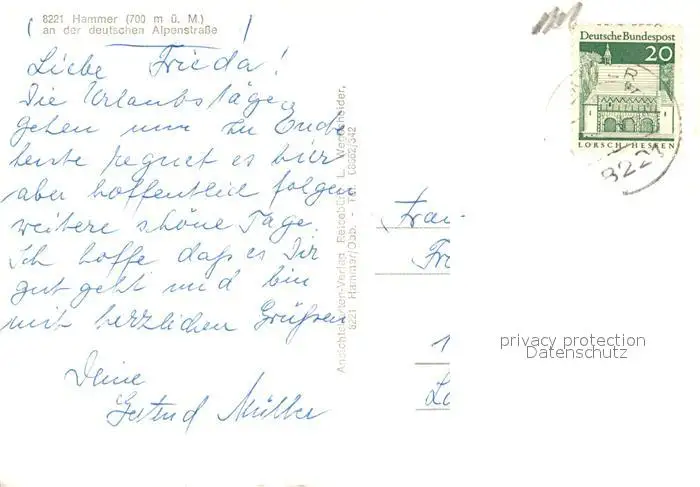 8221 Hammer (700 m ü. M.)
an der deutschen Alpenstraße
Liebe Frieda!
Die Urlaubstage
gehen nun zu Ende
heute regnet es hier
aber hoffentlich folgen
weitere schöne Tage.
Ich hoffe daß es Dir
gut geht und bin
mit herzlichen Grüßen
Deine
Gertrud
Ansichtskarten-Verlag Reisebüro L.
8221 Hammer/Obb. - Tel. (08662)342
Deutsche Bundespost
20
LORSCH/HESSEN
8221
Frau
Fr
1
privacy protection
Datenschutz